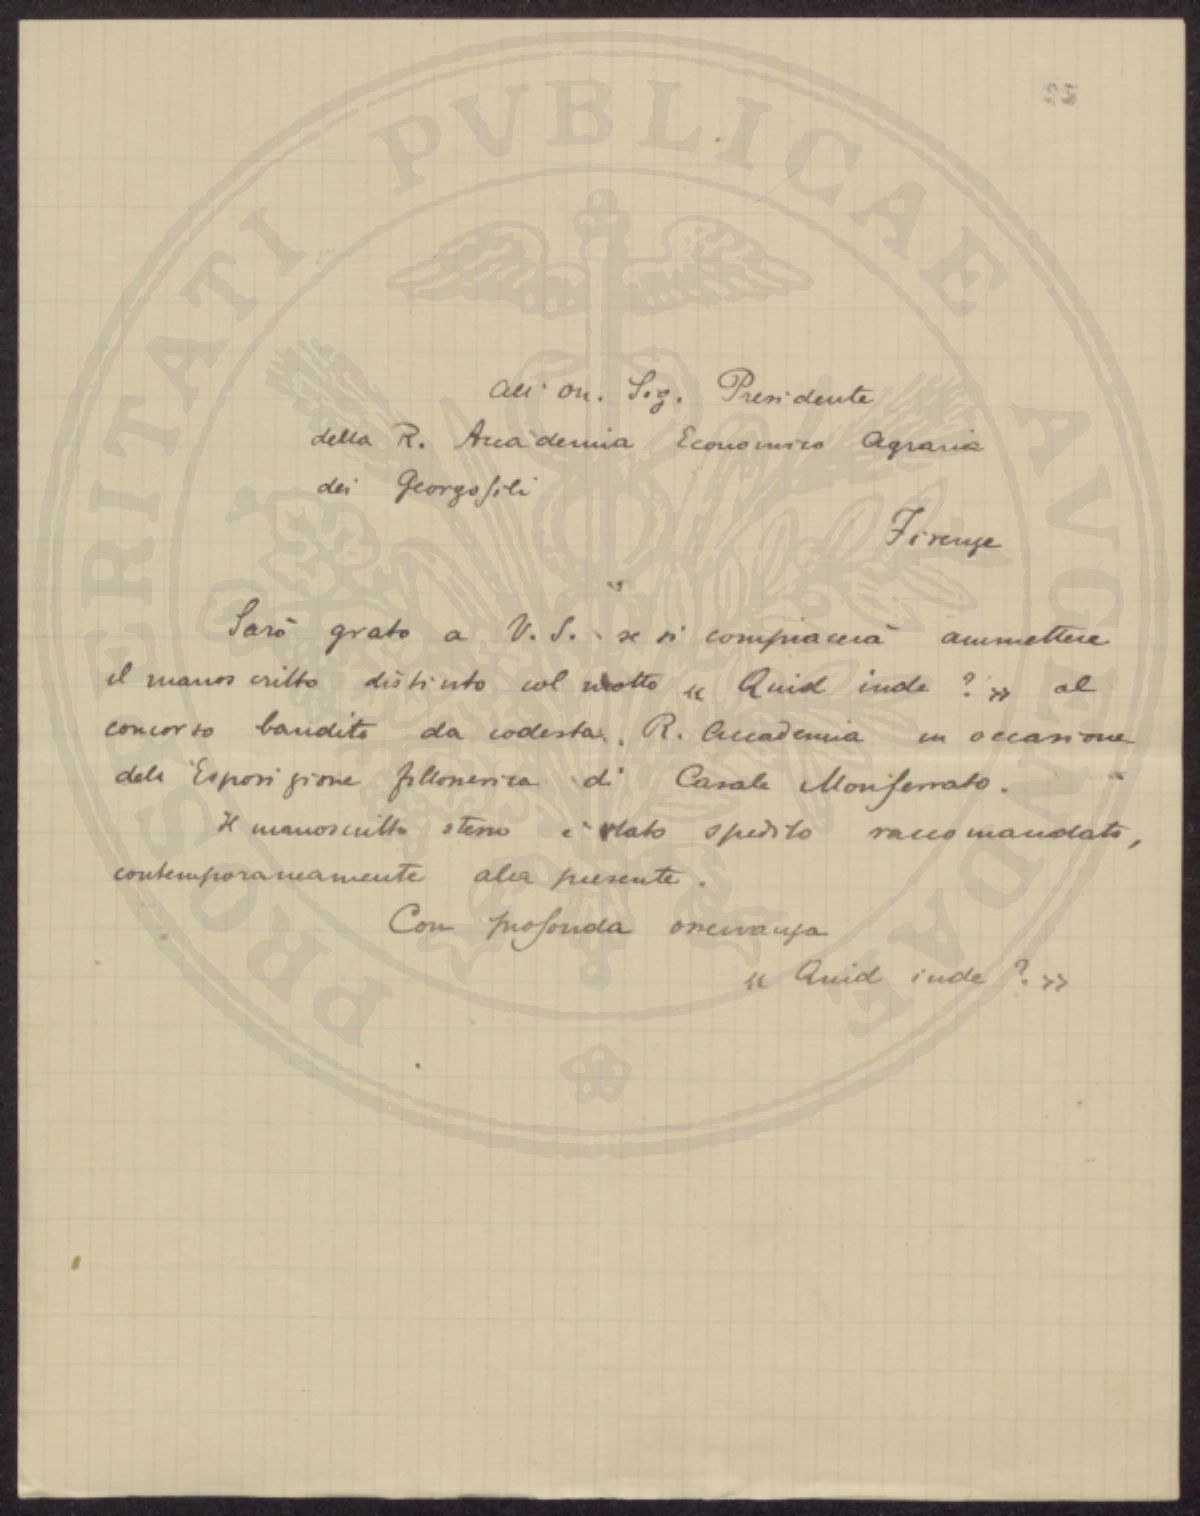 PROSPERITATI PUBLICAE AUGENDAE
All' On. Sig. Presidente
della R. Accademia Economico Agraria
dei Georgofili
Firenze
Sarò grato a V. S. se si compiacerà ammettere
il manoscritto distinto col motto « Quid inde ? » al
concorso bandito da codesta R. Accademia in occasione
della Esposizione fillosserica di Casale Monferrato.
Il manoscritto stesso è stato spedito raccomandato,
contemporaneamente alla presente.
Con profonda osservanza
« Quid inde ? »